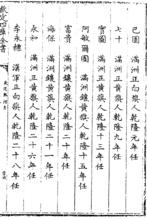 欽定四庫全書
巴圖 滿洲正白旗人乾隆元年任
七十 滿洲正黃旗人乾隆九年任
寶圖 滿洲正黃旗人乾隆十三年任
阿敏爾圖 滿洲鑲黃旗人乾隆十五年任
富貴 滿洲鑲黃旗人乾隆二十年任
海保 滿洲鑲黃旗人乾隆二十年任
永和 滿洲正黃旗人乾隆二十六年任
李永穗 漢軍正白旗人乾隆二十八年任